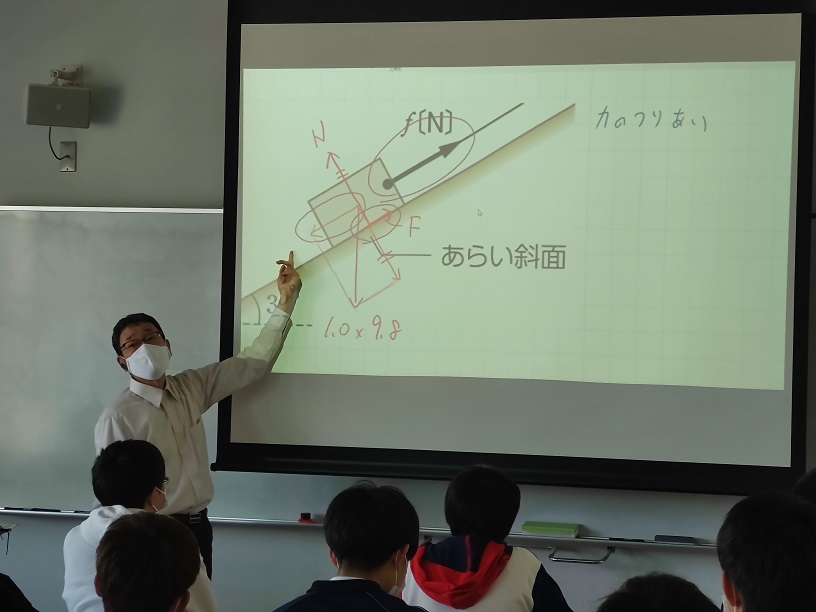 f[N]
力のつりあい
N
F
あらい斜面
3
1.0×9.8